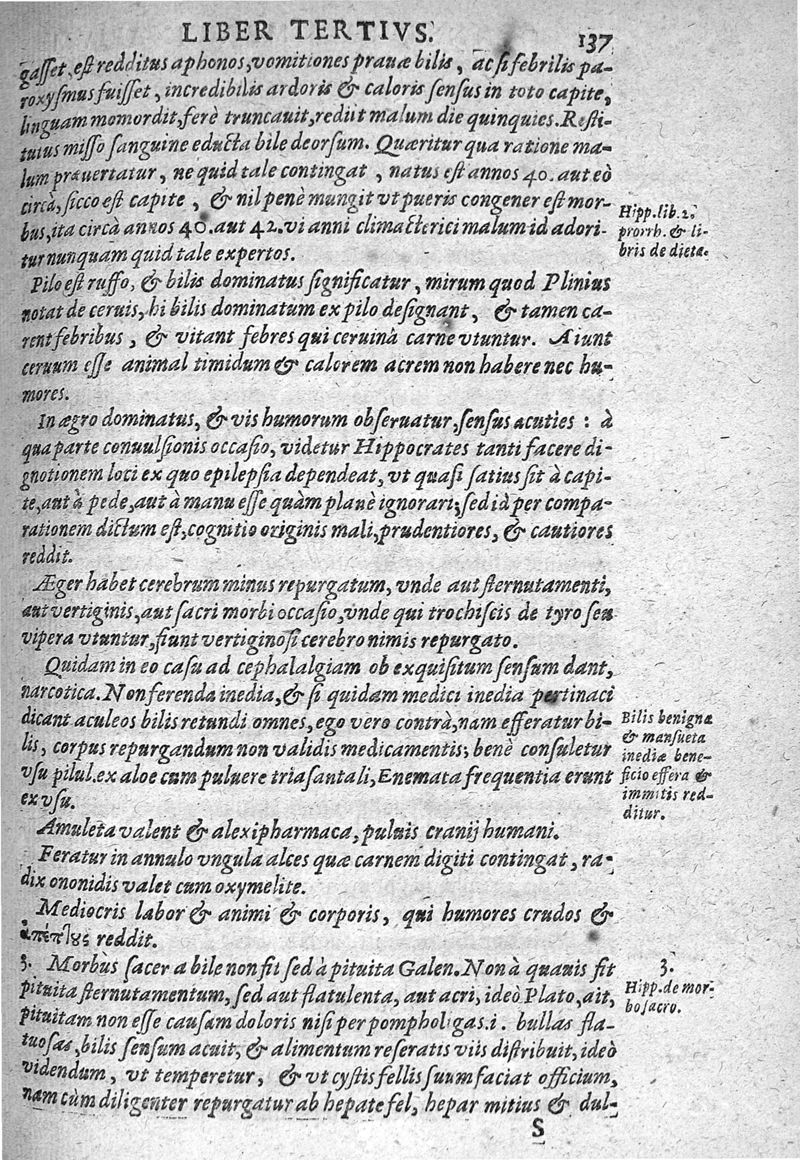 LIBER TERTIVS. 137
gasset, est redditus aphonos, vomitiones prauæ bilis, ac si febrilis pa-
roxysmus fuisset, incredibilis ardoris & caloris sensus in toto capite,
linguam momordit, ferè truncauit, rediit malum die quinquies. Resti-
tutus misso sanguine educta bile deorsum. Quæritur qua ratione ma-
lum præuertatur, ne quid tale contingat, natus est annos 40. aut eò
circà, sicco est capite, & nil penè mungit vt pueris congener est mor-
bus, ita circà annos 40. aut 42. vi anni climacterici malum id adori-
tur nunquam quid tale expertos.
Hipp. lib. 2.
prorrh. & li-
bris de dieta.
Pilo est ruffo, & bilis dominatus significatur, mirum quod Plinius
notat de ceruis, hi bilis dominatum ex pilo designant, & tamen ca-
rent febribus, & vitant febres qui ceruinâ carne vtuntur. Aiunt
ceruum esse animal timidum & calorem acrem non habere nec hu-
mores.
In ægro dominatus, & vis humorum obseruatur, sensus acuties: à
qua parte conuulsionis occasio, videtur Hippocrates tanti facere di-
gnotionem loci ex quo epilepsia dependeat, vt quasi satius sit à capi-
te, aut à pede, aut à manu esse quàm planè ignorari; sed id per compa-
rationem dictum est, cognitio originis mali, prudentiores, & cautiores
reddit.
Æger habet cerebrum minus repurgatum, vnde aut sternutamenti,
aut vertiginis, aut sacri morbi occasio, vnde qui trochiscis de tyro seu
vipera vtuntur, fiunt vertiginosi cerebro nimis repurgato.
Quidam in eo casu ad cephalalgiam ob exquisitum sensum dant,
narcotica. Non ferenda inedia, & si quidam medici inedia pertinaci
dicant aculeos bilis retundi omnes, ego vero contrà, nam efferatur bi-
lis, corpus repurgandum non validis medicamentis; benè consuletur
vsu pilul. ex aloe cum puluere triasantali, Enemata frequentia erunt
ex vsu.
Bilis benigna
& mansueta
inediæ bene-
ficio effera &
immitis red-
ditur.
Amuleta valent & alexipharmaca, puluis cranij humani.
Feratur in annulo vngula alces quæ carnem digiti contingat, ra-
dix ononidis valet cum oxymelite.
Mediocris labor & animi & corporis, qui humores crudos &
ἀπέπτους reddit.
3. Morbus sacer a bile non fit sed à pituita Galen. Non à quauis fit
pituita sternutamentum, sed aut flatulenta, aut acri, ideò Plato, ait,
pituitam non esse causam doloris nisi per pompholigas .i. bullas fla-
tuosas, bilis sensum acuit, & alimentum reseratis viis distribuit, ideò
videndum, vt temperetur, & vt cystis fellis suum faciat officium,
nam cùm diligenter repurgatur ab hepate fel, hepar mitius & dul-
3.
Hipp. de mor-
bo sacro.
S